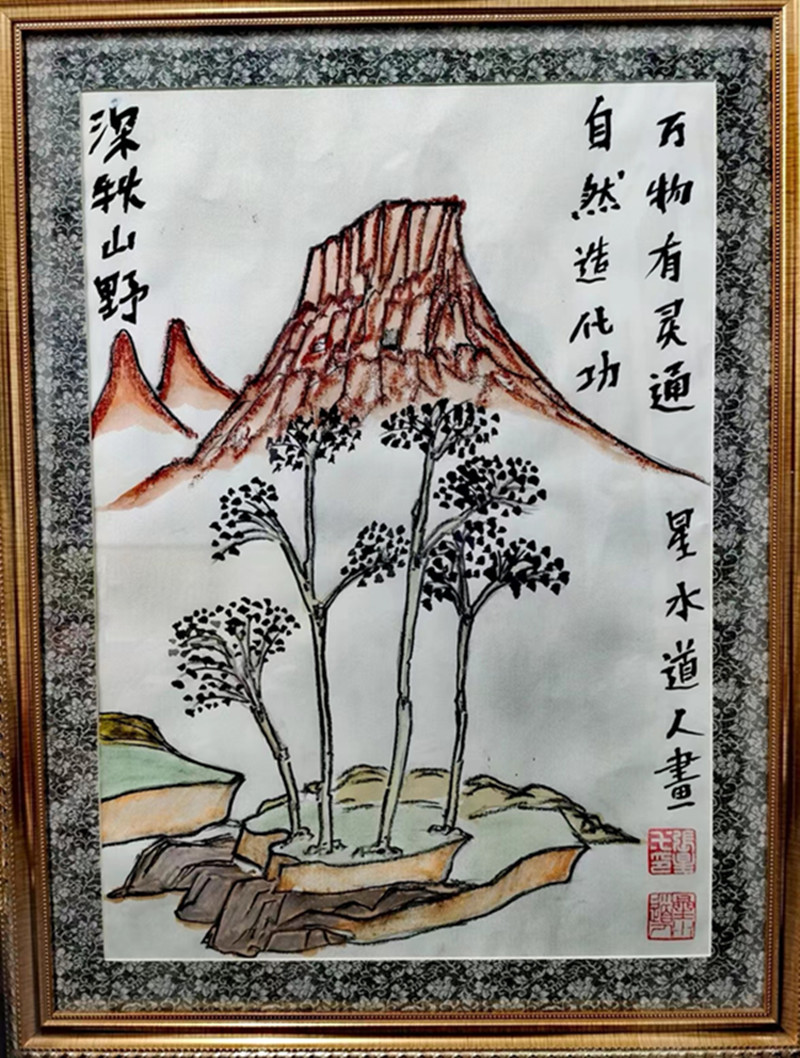 万物有灵通
自然造化功
星水道人畫
深秋山野